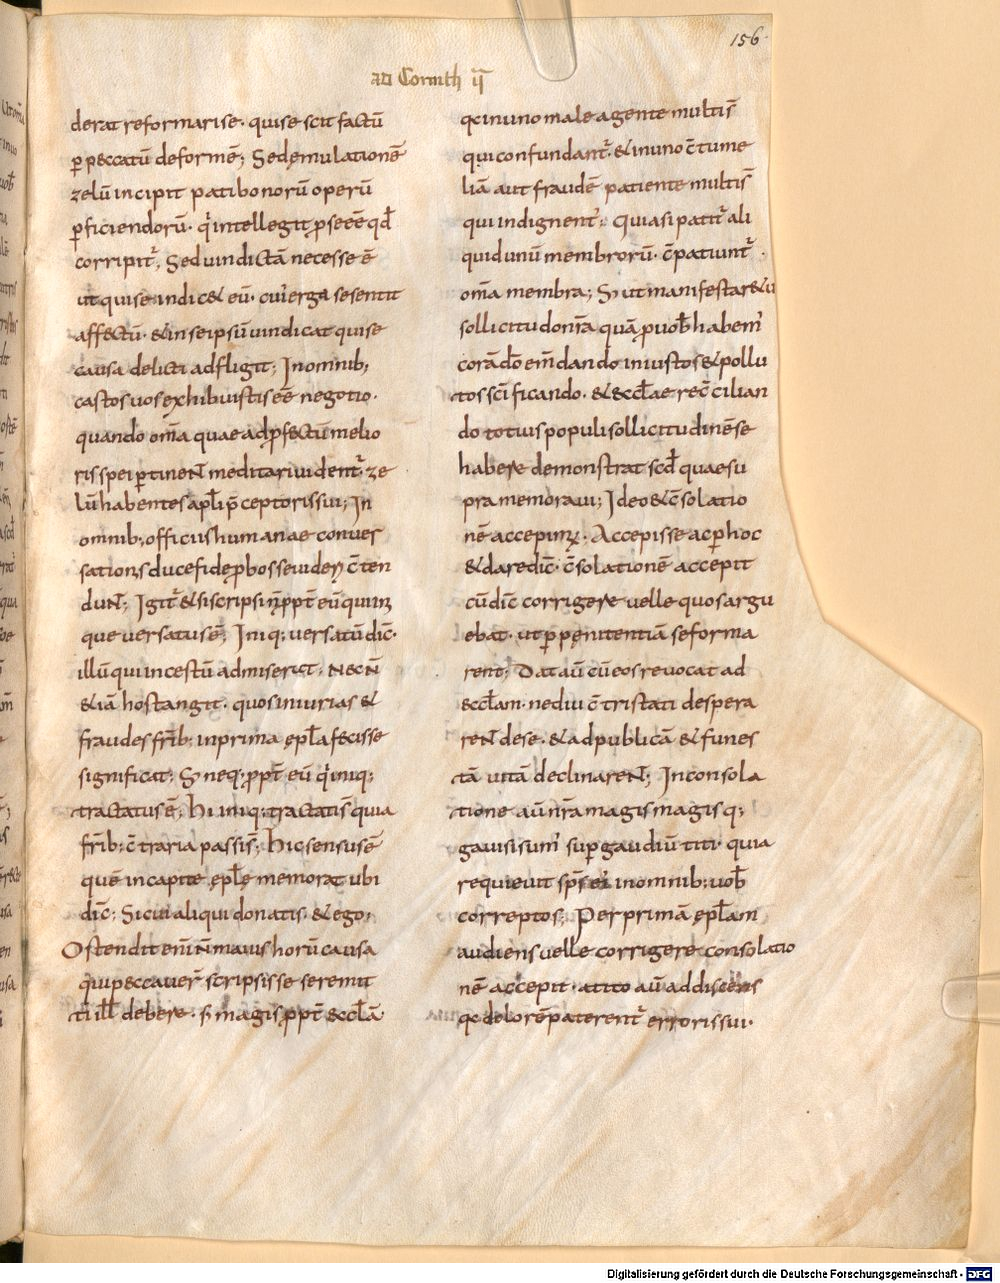 156
ad Corinth ii
derat reformari se· qui se scit factū
p̱ peccatū deformē; Sed ęmulationē
zelū incipit pati bonorū operū
p̱ficiendorū· q' intellegit p se eē qđ
corripit'; Sed vindictā necesse ē
ut qui se indic& eū· cui' erga se sentit
affectū· & in se ipsū vindicat qui se
causa delicti adfligit; In omnib;
castos vos exhibuistis eē negotio·
quando om̄a quae ad p̱fectū melio
ris spei p̱tinent meditari vident'· ze
lū habentes apłi p̄ceptoris sui; In
omnib; officiis humanae conver
sationis duce fide p̱bos se videri c̄ten
dunt; Igit' & si scripsi n̄ ppt̄ eū qui iniq;
que versatus ē; Iniq; versatū dic̄·
illū qui incestū admiserit· nec n̄
& iā hos tangit· quos iniurias &
fraudes fr̄ib; in prima epła fecisse
significat; S; neq; ppt̄ eū q' iniq;
tractatus ē; Hi iniq; tractati s̄ quia
fr̄ib; c̄traria passi s̄; Hic sensus ē
quē in capite epłę memorat ubi
dic̄; Si cui aliqui donatis· & ego;
Ostendit eni n̄ magis horū causa
qui peccaver̄ scripsisse se remit
ti ill' debere· s; magis ppt̄ eccłā
qc in uno male agente multi s̄
qui confundant'· & in uno c̄tume
liā aut fraudē patiente multi s̄
qui indignent'; Quia si patit' ali
quid unū membrorū· c̄patiunt'
om̄a membra; S; ut manifestaret'
sollicitudo nr̄a quā p vob' habem'
corā dō em̄dando iniustos & pollu
tos sc̄ificando· & eccłae rec̄cilian
do totius populi sollicitudinē se
habere demonstrat scđ quae su
pra memoravi; Ideo & c̄solatio
nē accepim'· Accepisse ac p̱ hoc
& dare dic̄· c̄solationē accepit
cū dic̄ corrigere velle quos argu
ebat· ut p̱ pęnitentiā se forma
rent; Dat aū cū eos revocat ad
eccłam· ne diu c̄tristati despera
rent de se· & ad publicā & funes
tā vitā declinarent; In consola
tione aū nr̄a magis magisq;
gavisi sum' sup̱ gaudiū titi· quia
requievit sp̄s ei' in omnib; vob'
correptos; Per primā epłam
audiens velle corrigere consolatio
nē accepit· a tito aū addiscens
qc dolorē paterent' erroris sui·
Digitalisierung gefördert durch die Deutsche Forschungsgemeinschaft - DFG